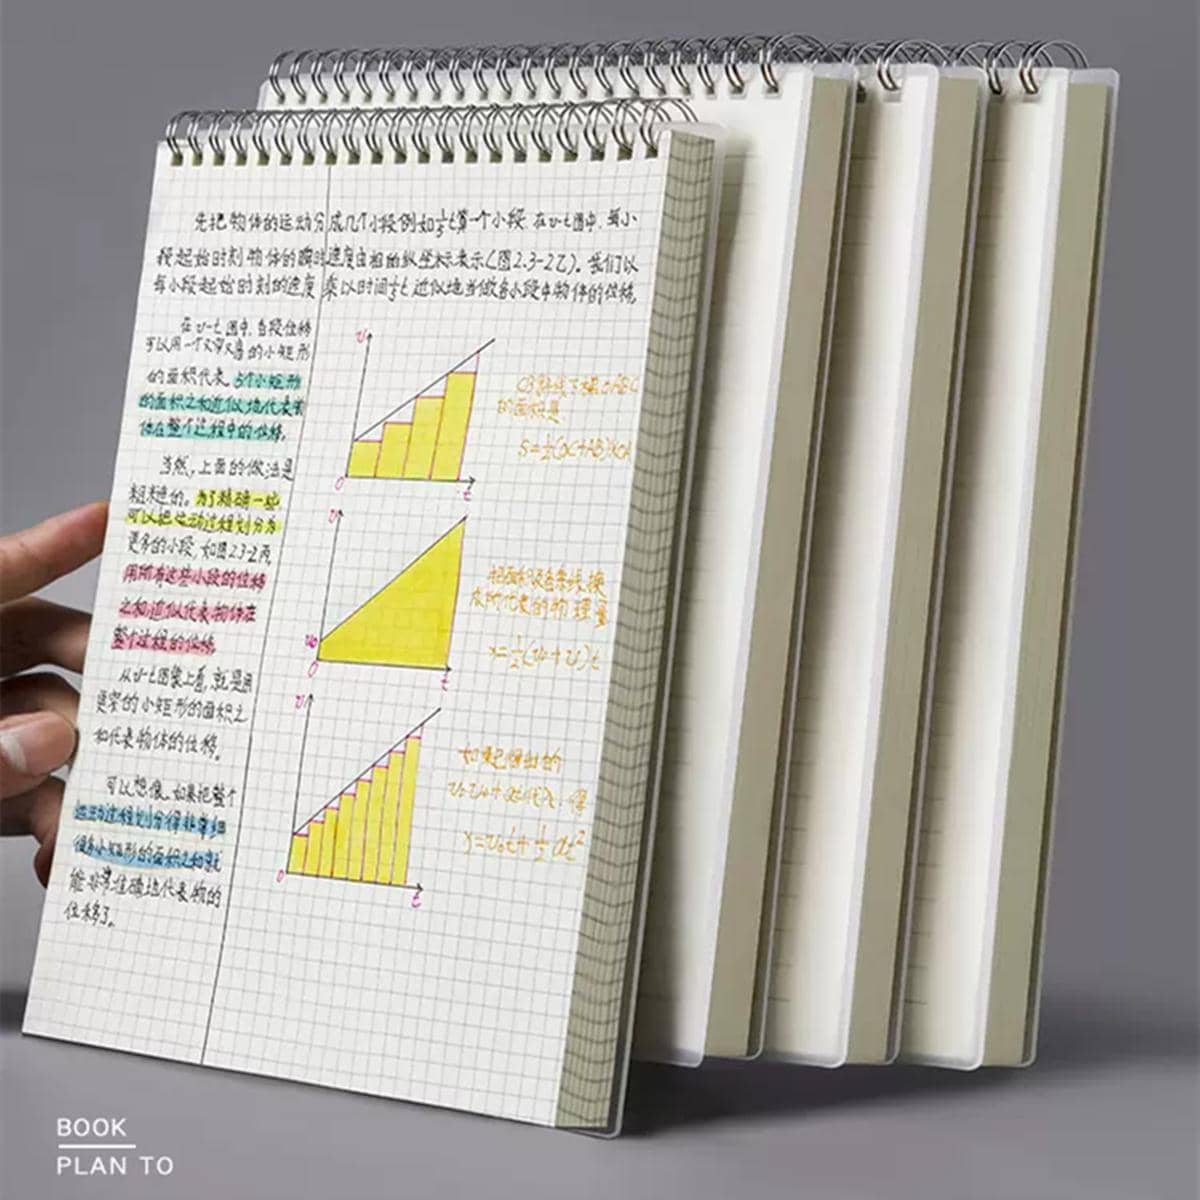 先把物体的运动分成几个小段例如⅕t算一个小段.在v-t图中.每小
段起始时刻物体的瞬时速度由相应纵坐标表示(图2.3-2乙)。我们以
每小段起始时刻的速度乘以时间⅕t近似地当做各小段中物体的位移,
在v-t图中,各段位移
可以用一个又窄又高的小矩形
的面积代表.5个小矩形
的面积之和近似地代表物
体在整个过程中的位移.
当然,上面的做法是
粗糙的。为了精确一些
可以把运动过程划分为
更多的小段,如图2.3-2丙,
用所有这些小段的位移
之和近似代表物体在
整个过程的位移.
从v-t图象上看,就是用
更窄的小矩形的面积之
和代表物体的位移。
可以想像,如果把整个
运动过程划分得非常细
很多小矩形的面积之和就
能非常准确地代表物的
位移了。
v
0
t
的面积是
S=½(OC+AB)×OA
v
v₀
0
t
把面积及各条线换
成所代表的物理量
x=½(v₀+v)t
v
0
t
v=v₀+at代入.得
x=v₀t+½at²
BOOK
PLAN TO